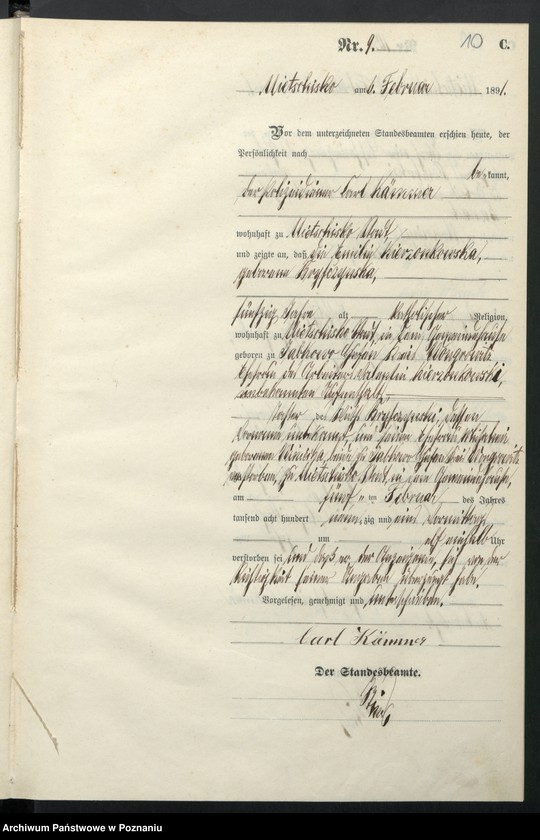 Nr. 9. 10 C.
Mietschisko am 6. Februar 1891.
Vor dem unterzeichneten Standesbeamten erschien heute, der
Persönlichkeit nach
bekannt,
der Polizeidiener Carl Kämmer
wohnhaft zu Mietschisko Stadt
und zeigte an, daß die Emilie Kierzonkowska,
geborene
fünfzig Jahre alt, katholischer Religion,
wohnhaft zu Mietschisko Stadt, in dem Gemeindehause
geboren zu Kreis Wongrowitz
Ehefrau des Arbeiters Valentin Kierzonkowski,
unbekannten Aufenthalts,
Tochter des dessen
Vorname unbekannt, und seiner Ehefrau
geborene Kreis Wongrowitz
verstorben, zu Mietschisko Stadt, in dem Gemeindehause,
am fünften Februar des Jahres
tausend acht hundert neunzig und ein Vormittags
um elf einhalb Uhr
verstorben sei und daß er, der Anzeigende, sich von der
Richtigkeit seiner Angaben überzeugt habe.
Vorgelesen, genehmigt und unterschrieben.
Carl Kämmer
Der Standesbeamte.
Archiwum Państwowe w Poznaniu